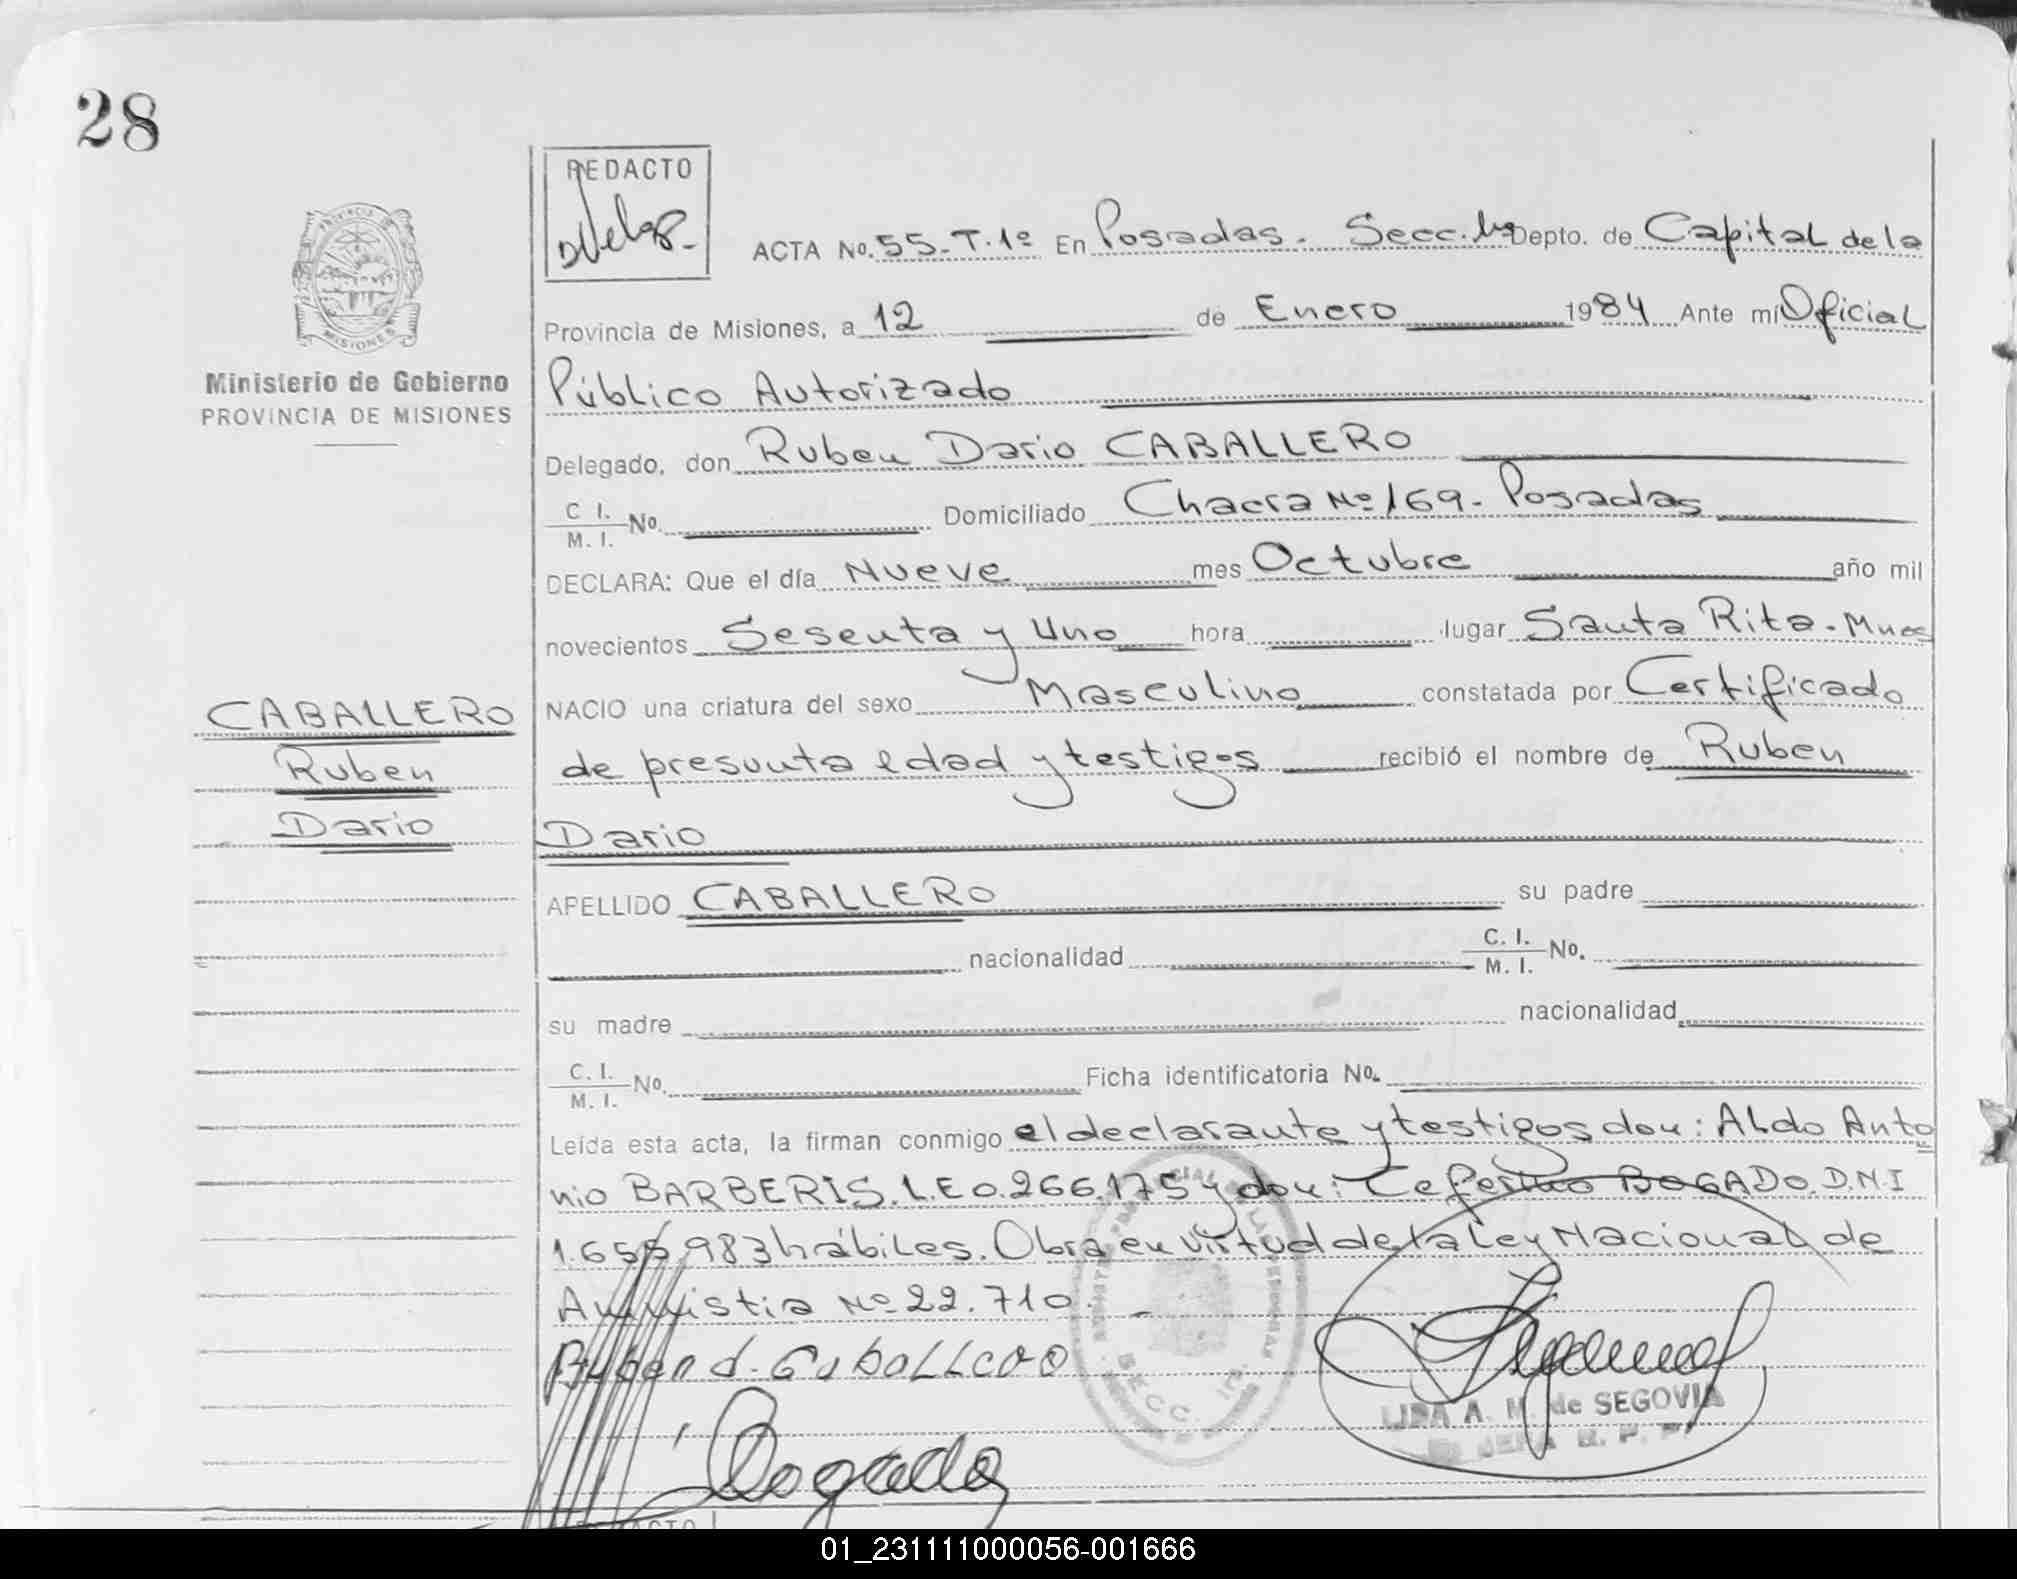 28
REDACTO
PROVINCIA DE
MISIONES
Ministerio de Gobierno
PROVINCIA DE MISIONES
ACTA No. 55-T.1º En Posadas. Secc. 1ra Depto. de Capital de la
Provincia de Misiones, a 12 de Enero 1984 Ante mí Oficial
Público Autorizado
Delegado, don Ruben Dario CABALLERO
C I. M. I. No. Domiciliado Chacra Nº 169 - Posadas
DECLARA: Que el día Nueve mes Octubre año mil
novecientos Sesenta y Uno hora lugar Santa Rita - Mnes
NACIO una criatura del sexo Masculino constatada por Certificado
de presunta edad y testigos recibió el nombre de Ruben
Dario
CABALLERO
Ruben
Dario
APELLIDO CABALLERO su padre
nacionalidad C. I. M. I. No.
su madre nacionalidad
C. I. M. I. No. Ficha identificatoria No.
Leída esta acta, la firman conmigo el declarante y testigos don: Aldo Anto
nio BARBERIS. L.E 0.266.175 y don: Ceferino BOGADO. D.N.I
1.655.983 hábiles. Obra en virtud de la Ley Nacional de
Amnistia Nº 22.710. -
Ruben d. Caballero
SECC. 1ra.
LIDA A. M. de SEGOVIA
Bogado
01_231111000056-001666